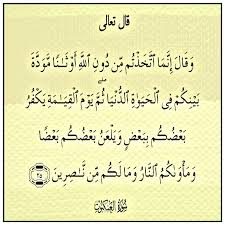 قال تعالى
وَقَالَ إِنَّمَا ٱتَّخَذْتُم مِّن دُونِ ٱللَّهِ أَوْثَـٰنًا مَّوَدَّةَ
بَيْنِكُمْ فِى ٱلْحَيَوٰةِ ٱلدُّنْيَا ۖ ثُمَّ يَوْمَ ٱلْقِيَـٰمَةِ يَكْفُرُ
بَعْضُكُم بِبَعْضٍ وَيَلْعَنُ بَعْضُكُم بَعْضًا
وَمَأْوَىٰكُمُ ٱلنَّارُ وَمَا لَكُم مِّن نَّـٰصِرِينَ ٢٥
سُورَةُ العَنكَبُوتِ